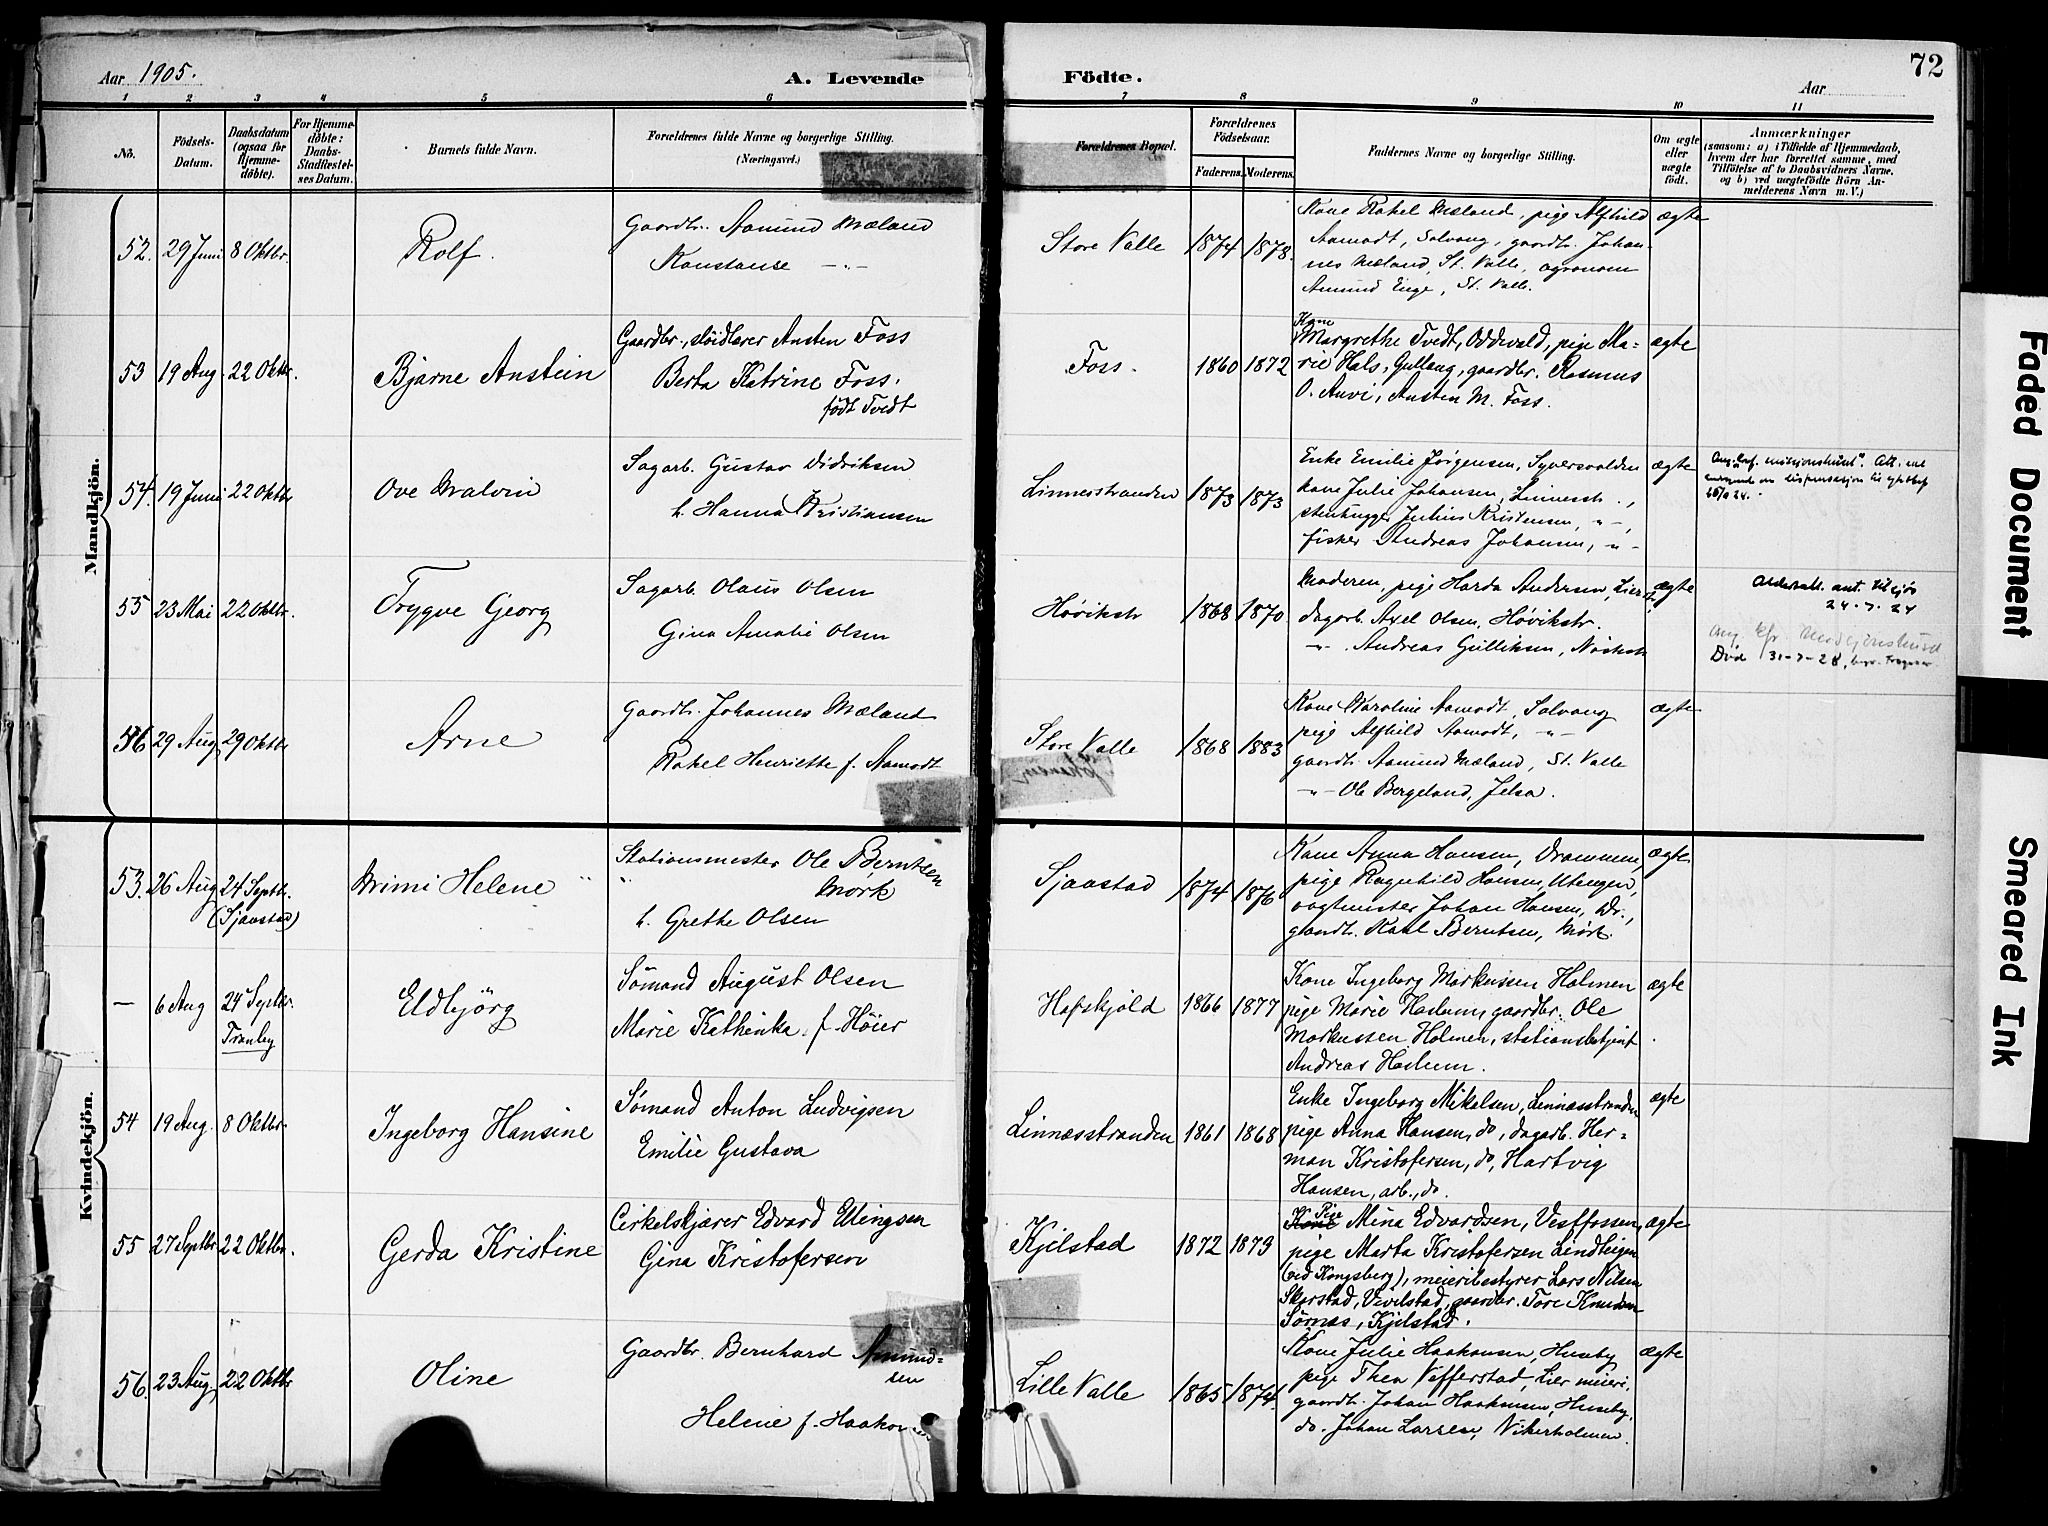 Aar 1905.
A. Levende
Födte.
Aar
72
1 2 3 4 5 6 7 8 9 10 11
No.
Födsels-
Datum.
Daabsdatum
(ogsaa for
Hjemme-
döbte).
For Hjemme-
döbte:
Daabs-
Stadfæstel-
ses Datum.
Barnets fulde Navn.
Forældrenes fulde Navne og borgerlige Stilling.
(Næringsvei.)
Forældrenes Bopæl.
Forældrenes
Födselsaar.
Faderens. Moderens.
Faddernes Navne og borgerlige Stilling.
Om ægte
eller
uægte
födt.
Anmærkninger
(saasom: a) i Tilfælde af Hjemmedaab,
hvem der har forrettet samme, med
Tilföielse af to Daabsvidners Navne.
og b) ved uægtefödte Börn An-
melderens Navn m. V.)
Mandkjön.
52. 29 Juni 8 Oktbr.
Rolf.
Gaardbr. Aamund Mæland
Konstanse —"—
Store Valle
1874 1878.
Kone Rakel Mæland, pige Alfhild
Aamodt, Solvang, gaardbr. Johan-
nes Mæland, St. Valle, agronom
Amund Enge, St. Valle.
ægte
53 19 Aug. 22 Oktbr.
Bjarne Anstein
Gaardbr., slöidlærer Ansten Foss
Berta Katrine Foss.
födt Tvedt
Foss.
1860 1872
Kone
Margrethe Tvedt, Oddevald, pige Ma-
rie Hals, Gullaug, gaardbr. Rasmus
O. Auvi, Ansten M. Foss.
ægte
54. 19 Juni 22 Oktbr
Ove Malvin
Sagarb. Gustav Didriksen
h. Hanna Kristiansen
Linnesstranden
1873 1873
Enke Emilie Jörgensen, Syversvolden
kone Julie Johansen, Linnesstr.,
stenhugger Julius Kristensen, —"—,
fisker Andreas Johansen, —"—
ægte
55 23 Mai 22 Oktbr.
Trygve Georg
Sagarb. Olaus Olsen
Gina Amalie Olsen
Høvikstr
1868 1870
Moderen, pige Harda Andersen, Lierstr.
dagarb. Axel Olsen, Høvikstr.
—"— Andreas Gulliksen, Nöstestr
ægte
24.7.24
Död 31-7-28,
56 29 Aug 29 Oktbr
Arne
Gaardbr. Johannes Mæland
Rakel Henriette f. Aamodt
Store Valle
1868 1883
Kone Karoline Aamodt, Solvang
pige Alfhild Aamodt, —"—
gaardbr. Aamund Mæland, St. Valle
—"— Ole Bergeland, Jelsa.
ægte
Kvindekjön.
53. 26 Aug 24 Septbr.
(Sjaastad)
Mimi Helene
Stationsmester Ole Berntsen
Mørk
h. Grethe Olsen
Sjaastad
1874 1876
Kone Anna Hansen, Drammen,
pige Ragnhild Hansen, Utengen,
vagtmester Johan Hansen, Dr.,
gaardbr. Karl Berntsen, Mørk.
ægte
— 6 Aug 24 Septbr.
Tranby
Eldbjörg
Sömand August Olsen
Marie Kathinka f. Höier
Hafskjold
1866 1877
Kone Ingeborg Markussen Holmen
pige Marie Haslum, gaardbr. Ole
Markussen Holmen, stationsbetjent
Andreas Haslum.
ægte
54 19 Aug. 8 Oktbr.
Ingeborg Hansine
Sömand Anton Ludvigsen
Emilie Gustava
Linnesstranden
1861 1868
Enke Ingeborg Mikelsen, Linnesstranden
pige Anna Hansen, do, dagarb. Her-
man Kristofersen, do, Hartvig
Hansen, arb., do.
ægte
55 27 Septbr 22 Oktbr.
Gerda Kristine
Cirkelskjærer Edvard Ellingsen
Gina Kristofersen
Kjelstad
1872 1879
Kone Pige Mina Edvardsen, Vestfossen,
pige Marta Kristofersen Lindteigen
(ved Kongsberg), meieribestyrer Lars Nilsen
Skjerstad, Vivilstad, gaardbr. Tore Knudsen
Sörnes, Kjelstad.
ægte
56 23 Aug. 22 Oktbr
Oline
Gaardbr. Bernhard Amund-
sen
Helene f. Haakonsen
Lille Valle
1865 1874
Kone Julie Haakonsen, Huseby
pige Thea Vefferstad, Lier meieri,
gaardbr. Johan Haakonsen, Huseby,
do. Johan Larsen, Vikerholmen.
ægte
Faded Document
Smeared Ink